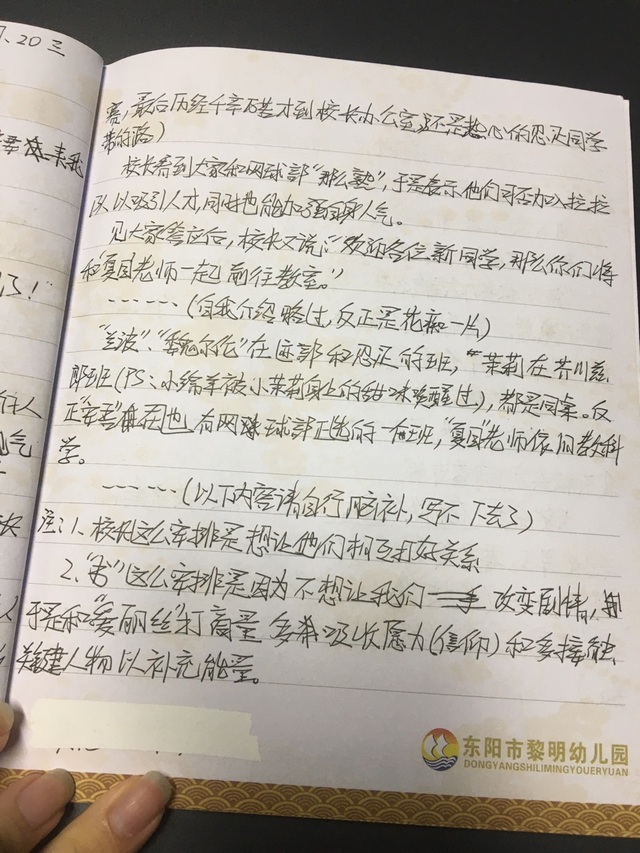 7.20 三
赛,最后历经千辛万苦才到校长办公室还是热心的忍足同学
带的路)
校长看到大家和网球部“那么熟”,于是表示他们可否加入拉拉
队以吸引人才,同时也能加强自身人气。
见大家答应后,校长又说:“欢迎各位新同学,那么你们将
和“夏国”老师一起前往教室。”
------(自我介绍略过,反正是花痴一片)
“兰波”、“魏尔伦”在迹部和忍足的班,茉莉在芥川慈
郎班(PS:小绵羊被小茉莉身上的甜味唤醒过),都是同桌。反
正在也有网球部正选的一班,“夏国”老师依旧教科
学。
------(以下内容请自行脑补,写不下去了)
注:1、校长这么安排是想让他们相互打好关系
2、“书”这么安排是因为不想让我们改变剧情,
于是和“爱丽丝”打商量多吸收愿力(信仰)和多接触
关键人物以补充能量。
了!”
东阳市黎明幼儿园
DONGYANGSHILIMINGYOUERYUAN